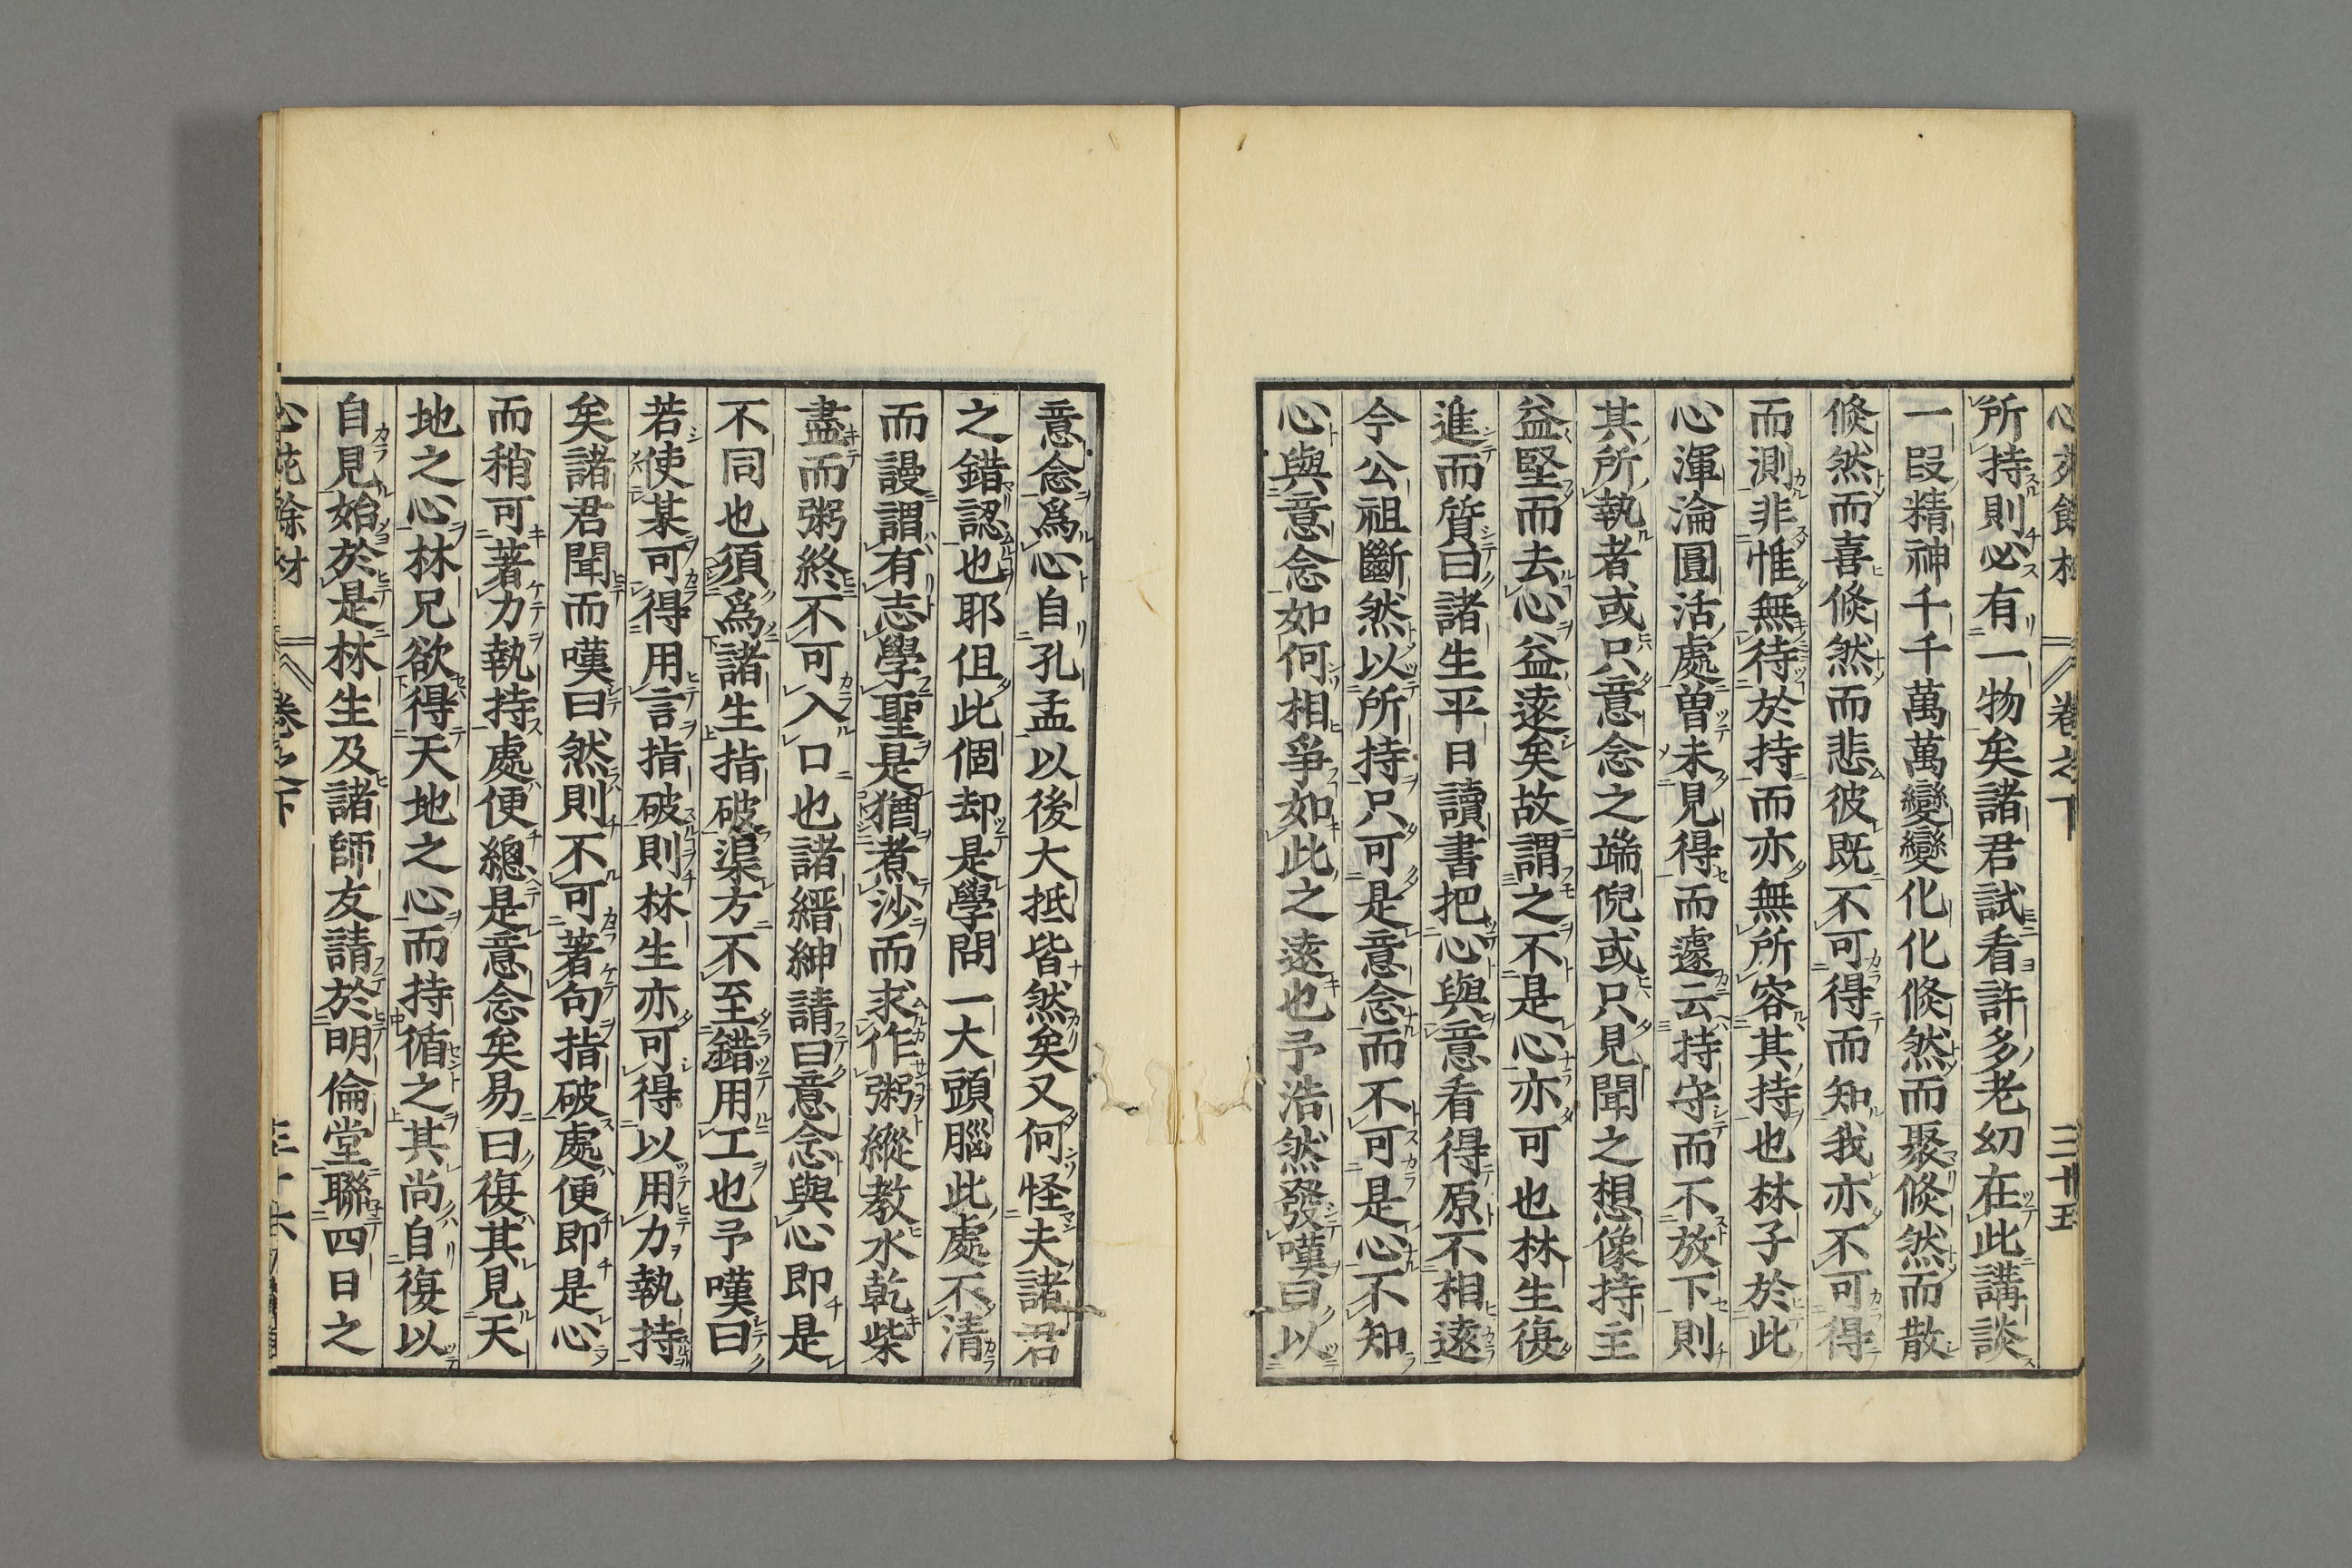 所持則必有一物矣諸君試看許多老幼在此講談
一段精神千千萬萬變變化化倏然而聚倏然而散
倏然而喜倏然而悲彼既不可得而知我亦不可得
而測非惟無待於持而亦無所容其持也林子於此
心渾淪圓活處曽未見得而遽云持守而不放下則
其所執者或只意念之端倪或只見聞之想像持主
益堅而去心益遠矣故謂之不是心亦可也林生復
進而質曰諸生平日讀書把心與意看得原不相遠
今公祖斷然以所持只可是意念而不可是心不知
心與意念如何相爭如此之遠也予浩然發嘆曰以
意念爲心自孔孟以後大抵皆然矣又何怪夫諸君
之錯認也耶但此個却是學問一大頭腦此處不清
而謾謂有志學聖是猶煮沙而求作粥縱教水乾柴
盡而粥終不可入口也諸縉紳請曰意念與心即是
不同也須爲諸生指破渠方不至錯用工也予嘆曰
若使某可得用言指破則林生亦可得以用力執持
矣諸君聞而嘆曰然則不可著句指破處便即是心
而稍可著力執持處便總是意念矣易曰復其見天
地之心林兄欲得天地之心而持循之其尚自復以
自見始於是林生及諸師友請於明倫堂聯四日之
卷之下